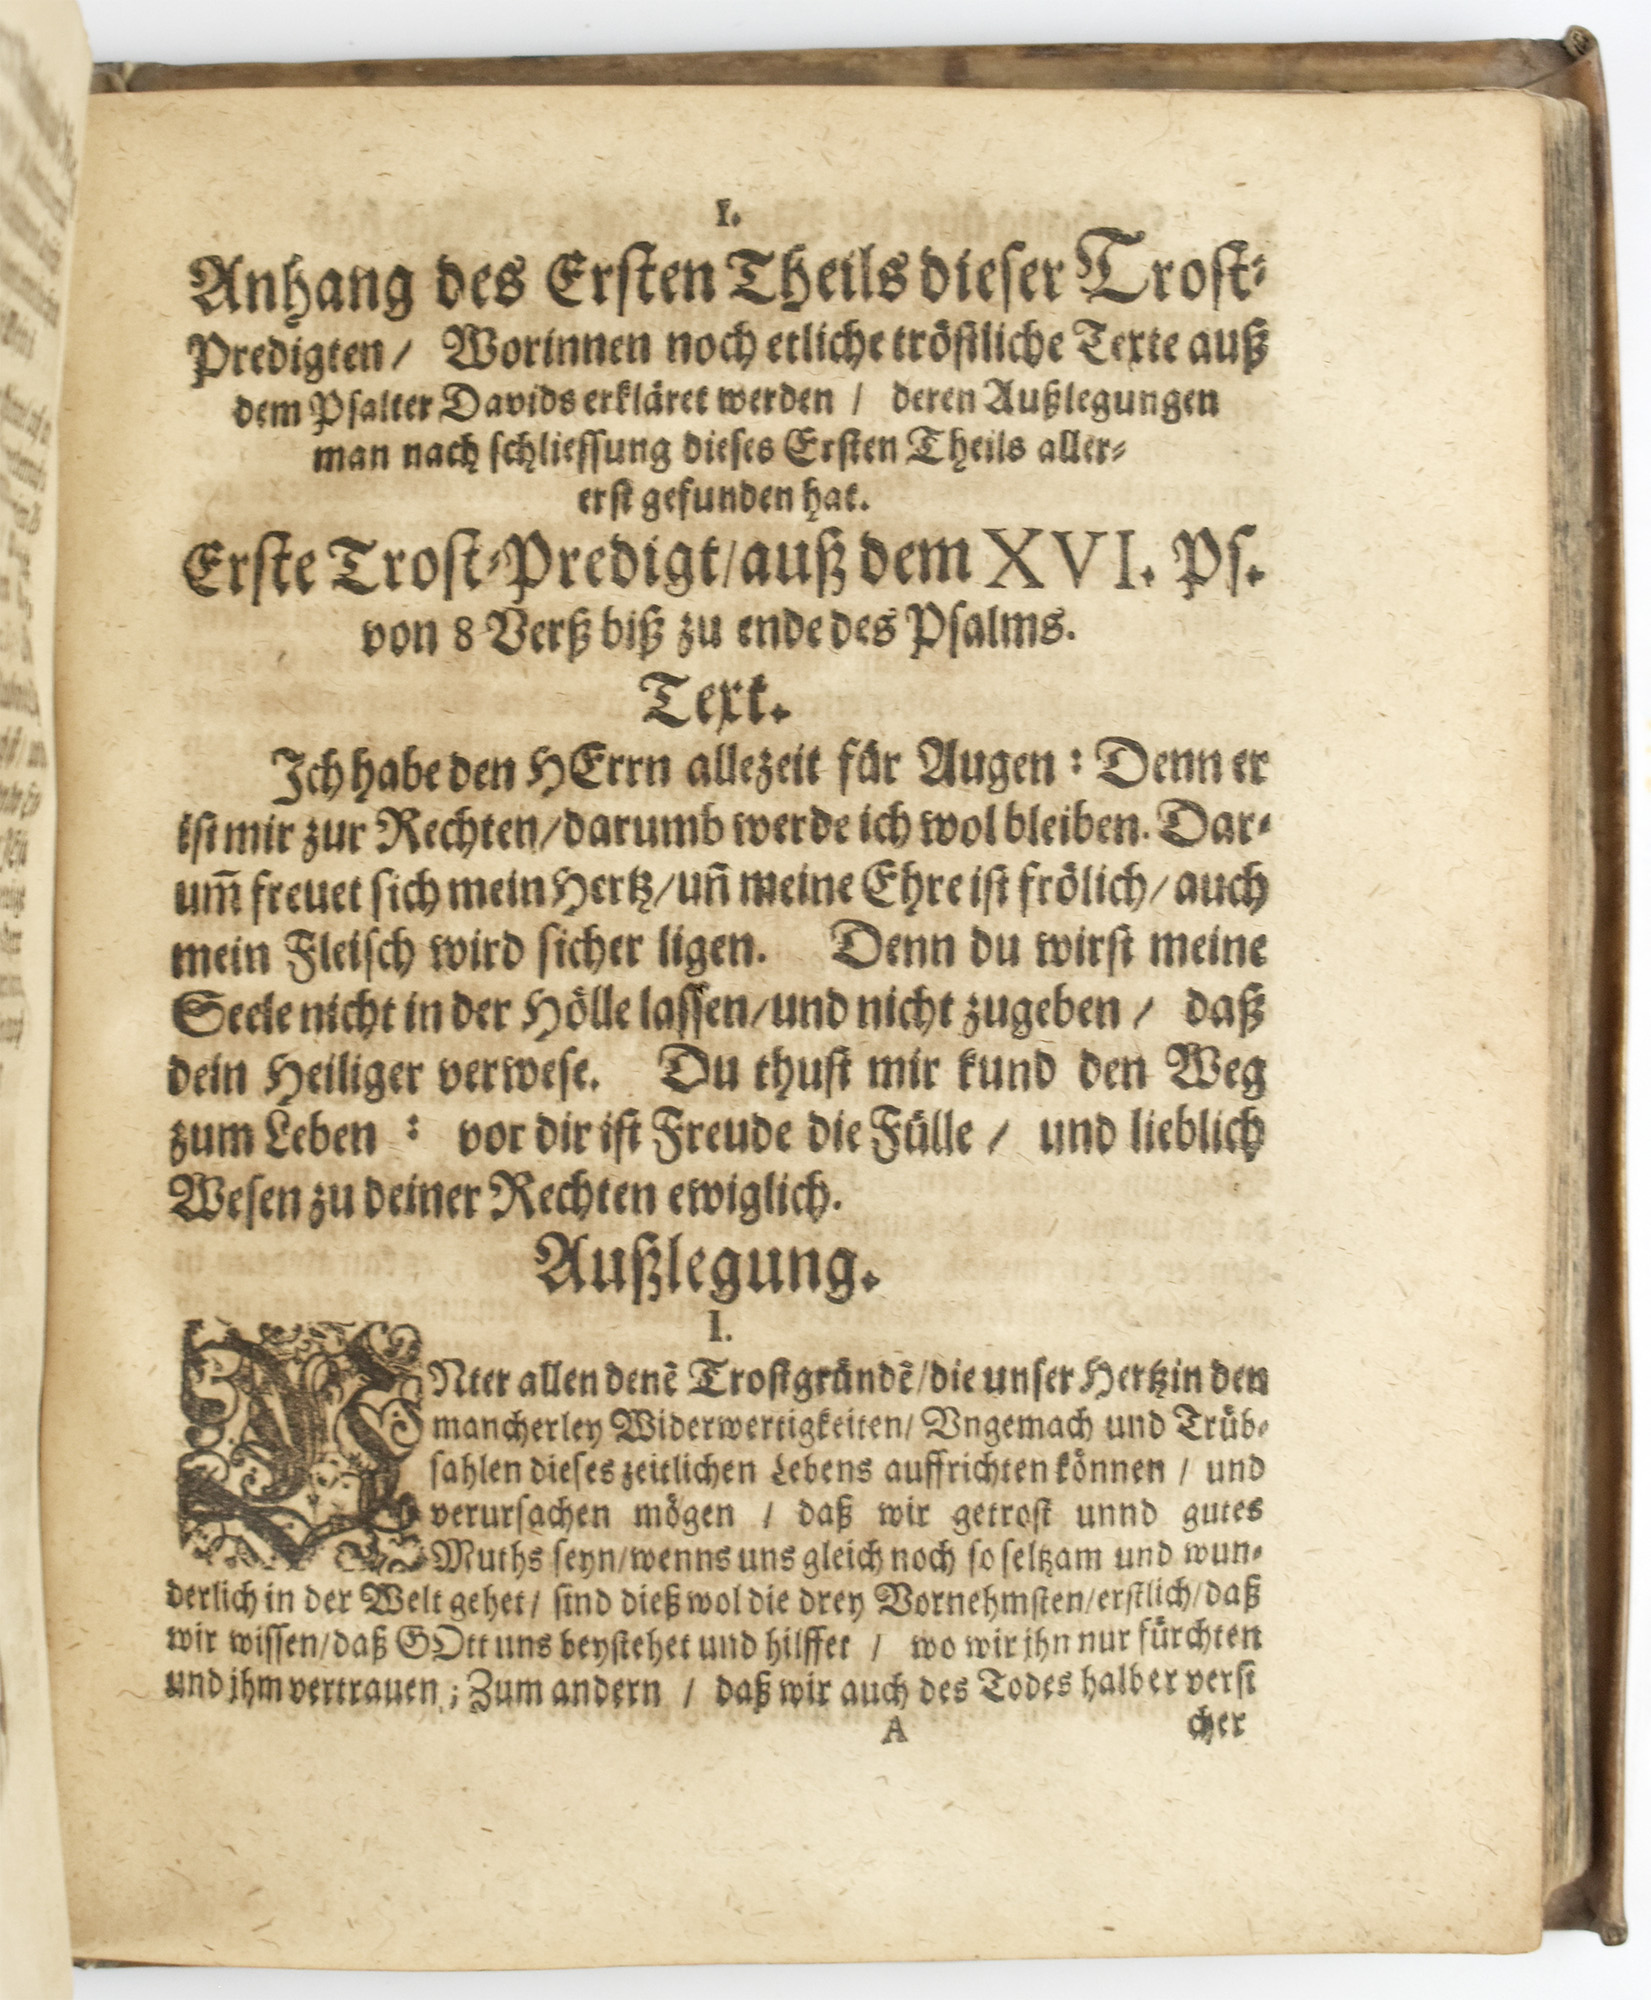 I.
Anhang des Ersten Theils dieser Trost-
Predigten/ Worinnen noch etliche tröstliche Texte auß
dem Psalter Davids erkläret werden / deren Außlegungen
man nach schliessung dieses Ersten Theils aller-
erst gefunden hat.
Erste Trost-Predigt/auß dem XVI. Ps.
von 8 Verß biß zu ende des Psalms.
Text.
Ich habe den HErrn allezeit für Augen : Denn er
ist mir zur Rechten/darumb werde ich wol bleiben. Dar-
um̃ freuet sich mein Hertz/uñ meine Ehre ist frölich/auch
mein Fleisch wird sicher ligen. Denn du wirst meine
Seele nicht in der Hölle lassen/und nicht zugeben / daß
dein Heiliger verwese. Du thust mir kund den Weg
zum Leben : vor dir ist Freude die Fülle / und lieblich
Wesen zu deiner Rechten ewiglich.
Außlegung.
I.
UNter allen denẽ Trostgründẽ/die unser Hertz in den
mancherley Widerwertigkeiten/ Vngemach und Trüb-
sahlen dieses zeitlichen Lebens auffrichten können / und
verursachen mögen / daß wir getrost unnd gutes
Muths seyn/wenns uns gleich noch so seltzam und wun-
derlich in der Welt gehet/ sind dieß wol die drey Vornehmsten/erstlich/daß
wir wissen/daß GOtt uns beystehet und hilffet / wo wir jhn nur fürchten
und jhm vertrauen ; Zum andern / daß wir auch des Todes halber versi
A cher